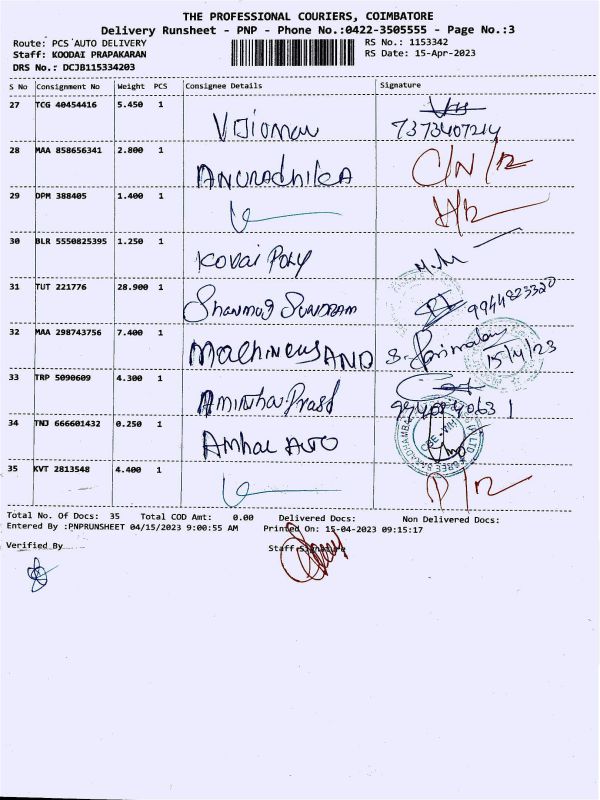 THE PROFESSIONAL COURIERS, COIMBATORE
Delivery Runsheet - PNP - Phone No.:0422-3505555 - Page No.:3
Route: PCS AUTO DELIVERY
RS No.: 1153342
Staff: KOODAI PRAPAKARAN
RS Date: 15-Apr-2023
DRS No.: DCJB115334203
S No Consignment No Weight PCS Consignee Details Signature
27 TCG 40454416 5.450 1
7373407214
28 MAA 858656341 2.800 1 ANURADHIKA C/N/R
29 DPM 388405 1.400 1
30 BLR 5550825395 1.250 1 Kovai Poly
31 TUT 221776 28.900 1 Shanmug SUNDRAM 9944823320
32 MAA 298743756 7.400 1 AND 15/4/23
33 TRP 5090609 4.300 1
34 TNJ 666601432 0.250 1 AUTO
35 KVT 2813548 4.400 1 D/R
Total No. Of Docs: 35 Total COD Amt: 0.00 Delivered Docs: Non Delivered Docs:
Entered By :PNPRUNSHEET 04/15/2023 9:00:55 AM Printed On: 15-04-2023 09:15:17
Verified By Staff Signature